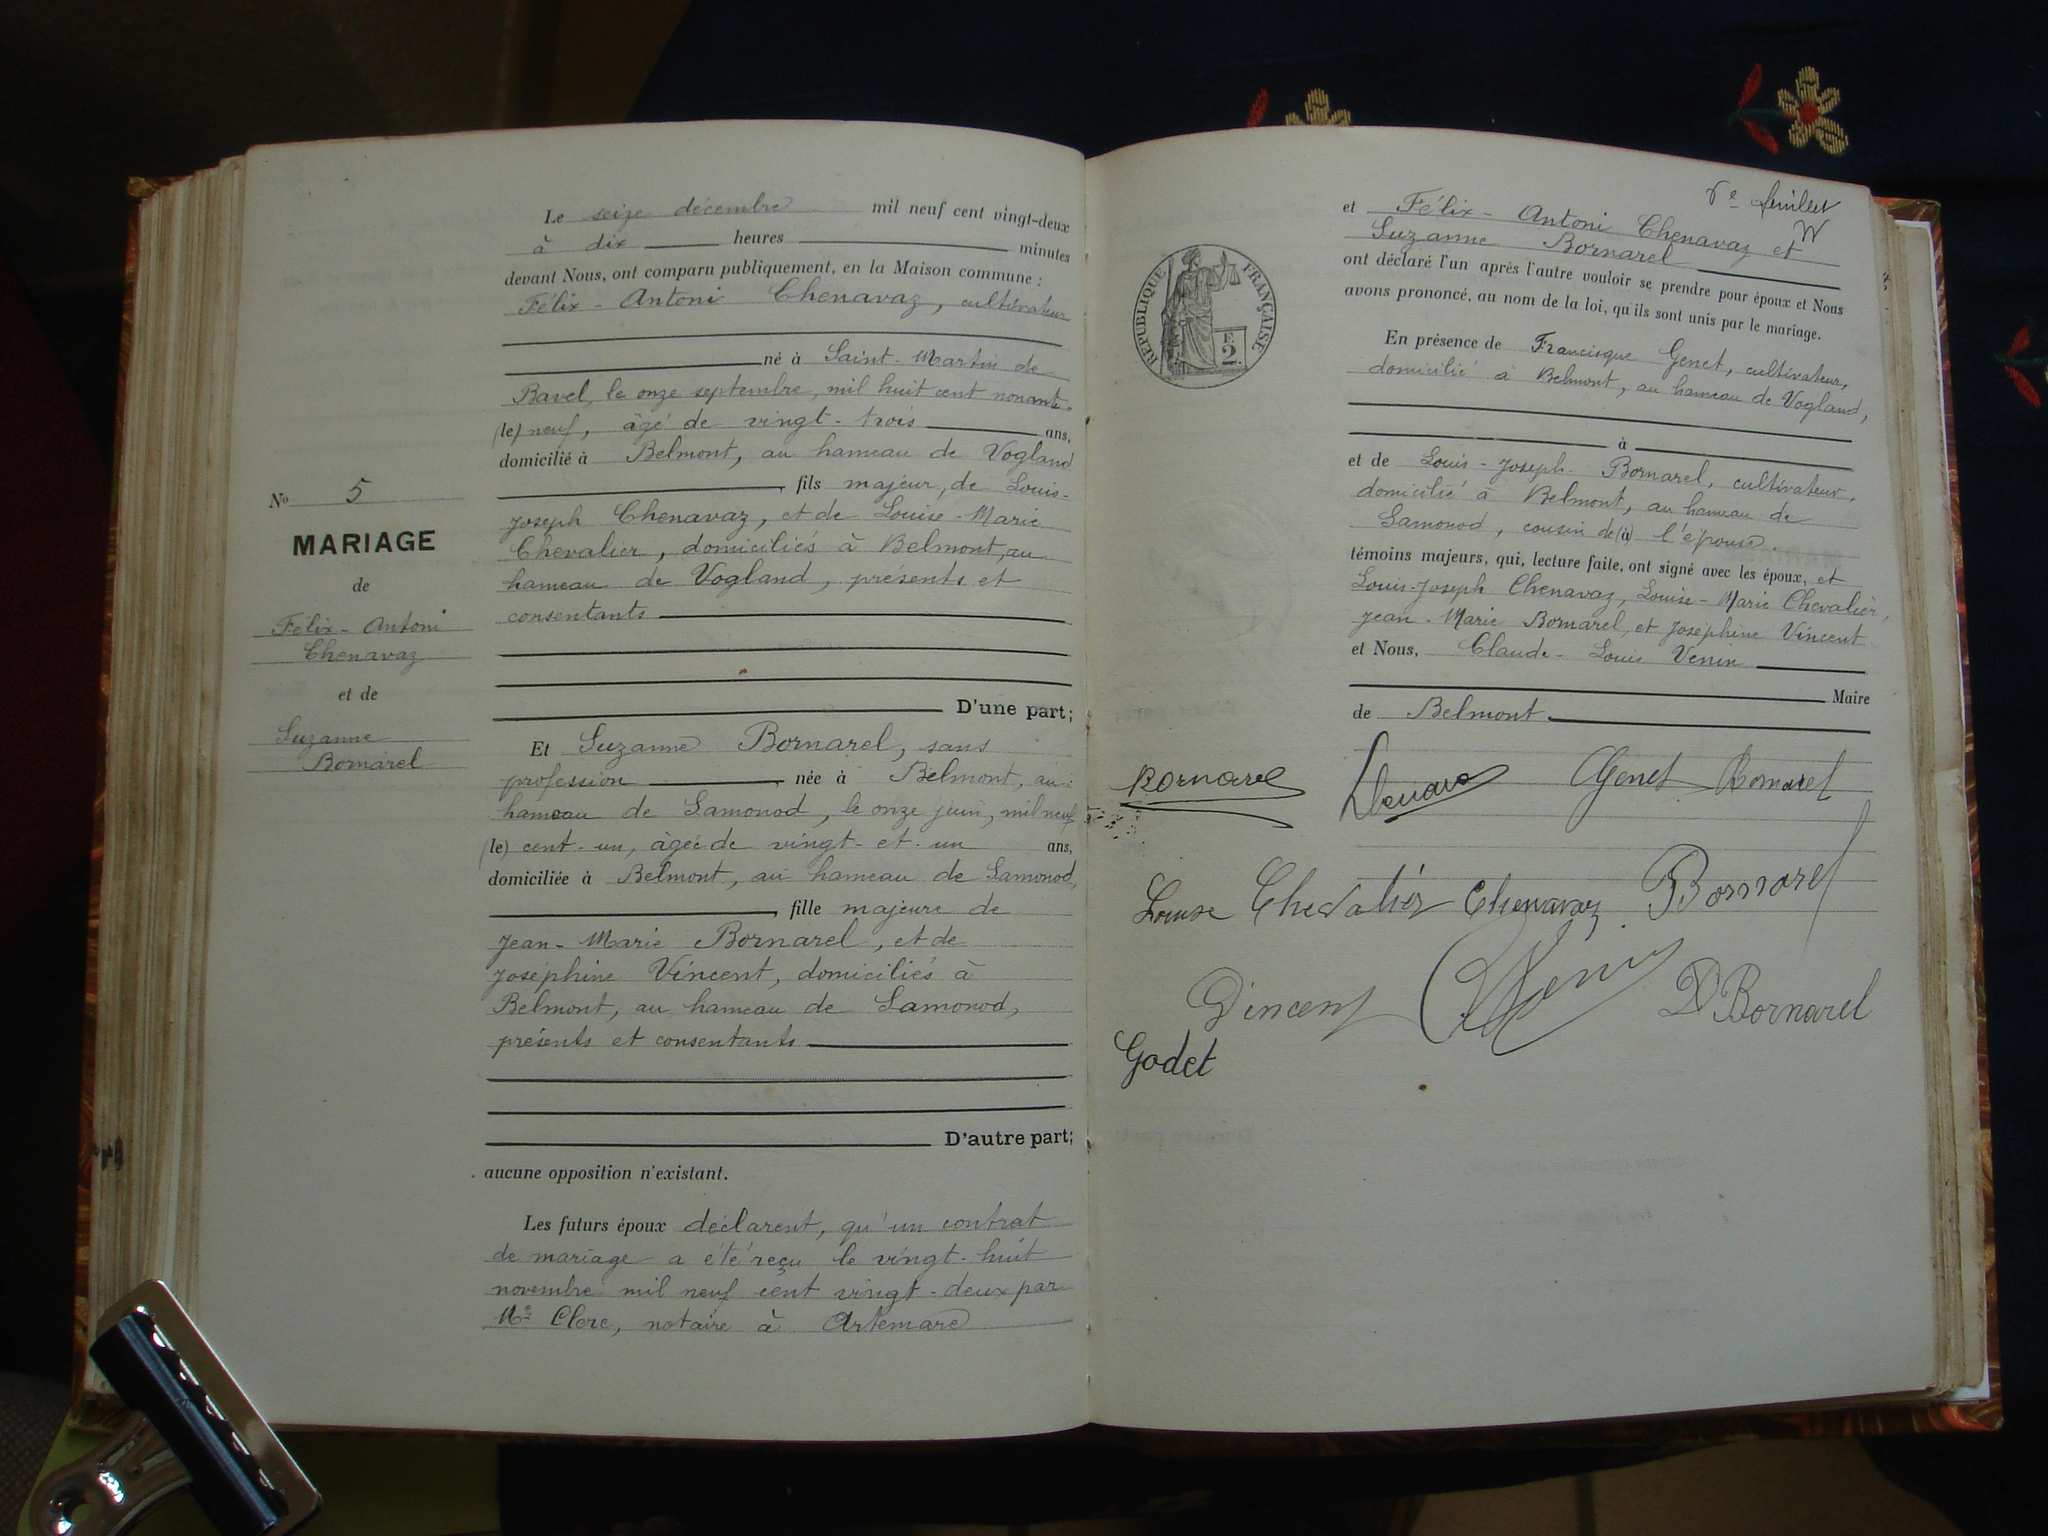 Nº 5
MARIAGE
de
Félix-Antoni
Chenavaz
et de
Suzanne
Bornarel
Le seize décembre mil neuf cent vingt-deux
à dix heures minutes
devant Nous, ont comparu publiquement, en la Maison commune :
Félix-Antoni Chenavaz, cultivateur
né à Saint-Martin de
Bavel, le onze septembre, mil huit cent nonante-
(le) neuf, âgé de vingt-trois ans,
domicilié à Belmont, au hameau de Vogland
, fils majeur, de Louis-
Joseph Chenavaz, et de Louise-Marie
Chevalier, domiciliés à Belmont, au
hameau de Vogland, présents et
consentants
D'une part;
Et Suzanne Bornarel, sans
profession, née à Belmont, au
hameau de Samonod, le onze juin, mil neuf
(le) cent-un, âgée de vingt-et-un ans,
domiciliée à Belmont, au hameau de Samonod,
, fille majeure de
Jean-Marie Bornarel, et de
Joséphine Vincent, domiciliés à
Belmont, au hameau de Samonod,
présents et consentants
D'autre part;
aucune opposition n'existant.
Les futurs époux déclarent, qu'un contrat
de mariage a été reçu le vingt-huit
novembre mil neuf cent vingt-deux par
Me Clerc, notaire à Artemare
6e feuillet
et Félix-Antoni Chenavaz et
Suzanne Bornarel
ont déclaré l'un après l'autre vouloir se prendre pour époux et Nous
avons prononcé, au nom de la loi, qu'ils sont unis par le mariage.
RÉPUBLIQUE FRANÇAISE
2F
En présence de Francisque Genet, cultivateur,
domicilié à Belmont, au hameau de Vogland,
à
et de Louis-Joseph Bornarel, cultivateur,
domicilié à Belmont, au hameau de
Samonod, cousin de (à) l'épouse.
témoins majeurs, qui, lecture faite, ont signé avec les époux, et
Louis-Joseph Chenavaz, Louise-Marie Chevalier,
Jean-Marie Bornarel, et Joséphine Vincent
et Nous, Claude-Louis Venin
Maire
de Belmont
Bornarel Chenavaz Genet Bornarel
Louise Chevalier Chenavaz Bornarel
Vincent D Bornarel
Godet